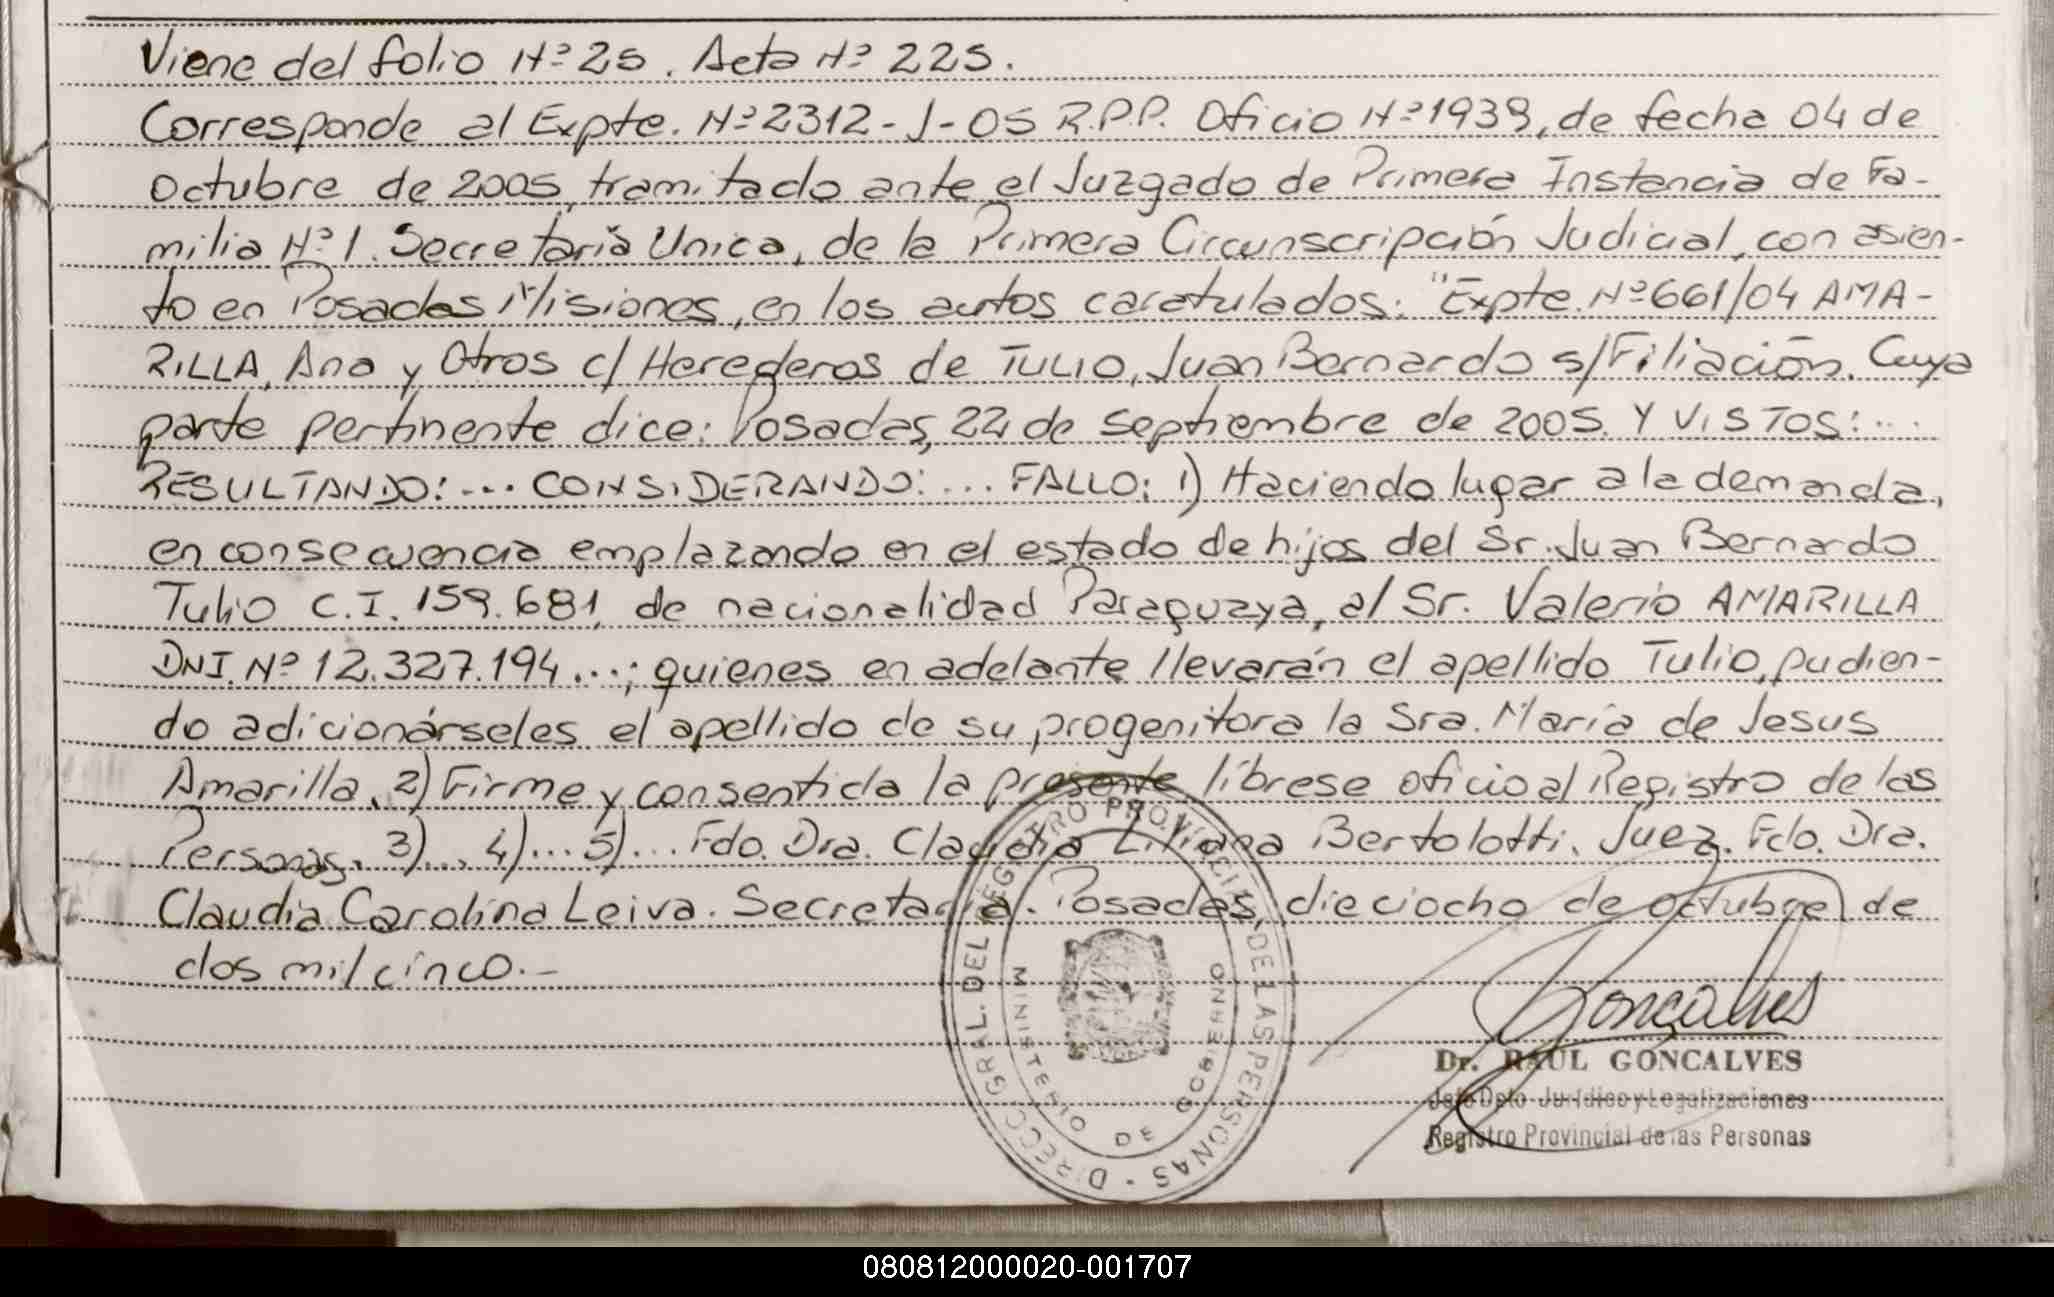 Viene del folio Nº 25. Acta Nº 225.
Corresponde al Expte. Nº 2312-J-05 R.P.P. Oficio Nº 1939, de fecha 04 de
Octubre de 2005, tramitado ante el Juzgado de Primera Instancia de Fa-
milia Nº 1. Secretaría Unica, de la Primera Circunscripción Judicial, con asien-
to en Posadas Misiones, en los autos caratulados: "Expte. Nº 661/04 AMA-
RILLA, Ana y Otros c/ Herederos de TULIO, Juan Bernardo s/Filiación. Cuya
parte pertinente dice: Posadas, 22 de septiembre de 2005. Y VISTOS:...
RESULTANDO: ... CONSIDERANDO: ... FALLO: 1) Haciendo lugar a la demanda,
en consecuencia emplazando en el estado de hijos del Sr. Juan Bernardo
Tulio C.I. 159.681, de nacionalidad Paraguaya, al Sr. Valerio AMARILLA
DNI. Nº 12.327.194 ...; quienes en adelante llevarán el apellido Tulio, pudien-
do adicionárseles el apellido de su progenitora la Sra. María de Jesus
Amarilla. 2) Firme y consentida la presente, líbrese oficio al Registro de las
Personas. 3)... 4)... 5)... Fdo. Dra. Claudia Liliana Bertolotti. Juez. Fdo. Dra.
Claudia Carolina Leiva. Secretaria. Posadas, dieciocho de octubre de
dos mil cinco.-
DIRECC. GRAL. DEL REGISTRO PROVINCIAL DE LAS PERSONAS -
MINISTERIO DE GOBIERNO
Goncalves
Dr. RAUL GONCALVES
Jefe Dpto Jurídico y Legalizaciones
Registro Provincial de las Personas
080812000020-001707